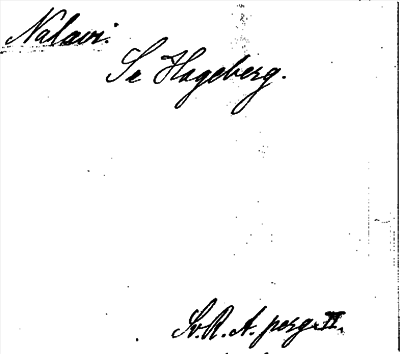 Nalavi.
Se Hageberg.
Sv. R. A. perg. II.